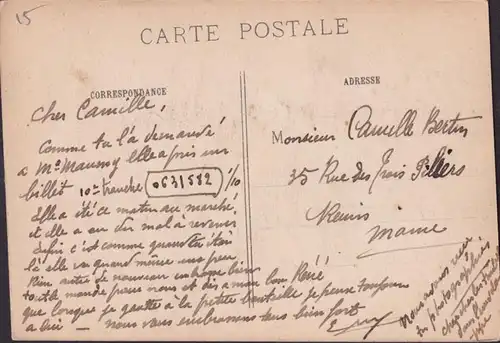 15
CARTE POSTALE
CORRESPONDANCE
ADRESSE
Cher Camille,
Comme tu l'a demandé
a Me Maunoy elle a pris un
billet 10e tranche 0631582 1/10
Elle a été ce matin au marché
et elle a eu du mal à revenir
Enfin c'est comme quand tu étai
là elle va quand même un peu
Rien autre de nouveau embrasse bien
tout le monde pour nous et dis a mon bon Réné
que lorsque je goutte à la petite bouteille je pense toujours
a lui — nous vous embrassons bien fort
Monsieur Camille Bertin
35 Rue des Trois Piliers
Reims
Marne
Nous avons reçu
les photographies